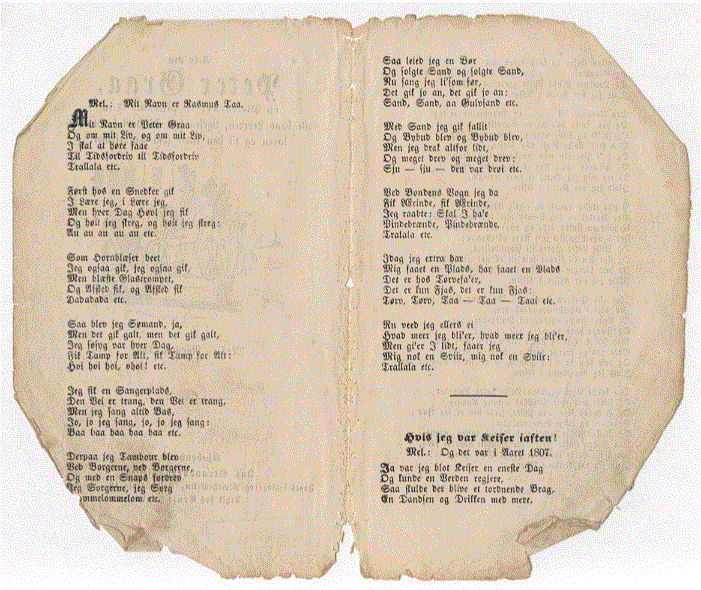 Mel.: Mit Navn er Rasmus Taa.
Mit Navn er Peter Graa
Og om mit Liv, og om mit Liv,
I skal at høre faae
Til Tidsfordriv til Tidsfordriv
Trallala etc.
Først hos en Snedker gik
I Lære jeg, i Lære jeg,
Men hver Dag Høvl jeg fik
Og høit jeg skreg, og høit jeg skreg:
Au au au au au etc.
Som Hornblæser heet
Jeg ogsaa gik, jeg ogsaa gik,
Men blæste Glastrompet,
Og Afsked fik, og Afsked fik
Dadadada etc.
Saa blev jeg Sømand, ja,
Men det gik galt, men det gik galt,
Jeg søsyg var hver Dag,
Fik Tamp for Alt, fik Tamp for Alt:
Hoi hoi hoi, ohoi! etc.
Jeg fik en Sangerplads,
Den Vei er trang, den Vei er trang,
Men jeg sang altid Bas,
Jo, jo jeg sang, jo, jo jeg sang:
Baa baa baa baa baa etc.
Derpaa jeg Tambour blev
Ved Borgerne, ved Borgerne,
Og med en Snaps fordrev
Jeg Sorgerne, jeg Sorg
ommelommelom etc.
Saa leied jeg en Bør
Og solgte Sand og solgte Sand,
Nu sang jeg li'som før,
Det gik jo an, det gik jo an:
Sand, Sand, aa Gulvsand etc.
Med Sand jeg gik fallit
Og Bybud blev og Bybud blev,
Men jeg drak altfor lidt,
Og meget drev og meget drev:
Sju — sju — den var drøi etc.
Ved Bondens Vogn jeg da
Fik Ærinde, fik Ærinde,
Jeg raabte: Skal I ha'e
Pindebrænde, Pindebrænde,
Tralala etc.
Idag jeg extra har
Mig faaet en Plads, har faaet en Plads
Det er hos Tørvefa'er,
Det er kun Fjas, det er kun Fjas:
Tørv, Tørv, Taa — Taa — Taai etc.
Nu veed jeg ellers ei
Hvad meer jeg bli'er, hvad meer jeg bli'er,
Men gi'er I lidt, faaer jeg
Mig nok en Sviir, mig nok en Sviir:
Trallala etc.
Hvis jeg var Keiser iaften!
Mel.: Og det var i Aaret 1807.
Ja var jeg blot Keiser en eneste Dag
Og kunde en Verden regjere,
Saa skulde der blive et tordnende Brag,
En Dandsen og Drikken med mere,